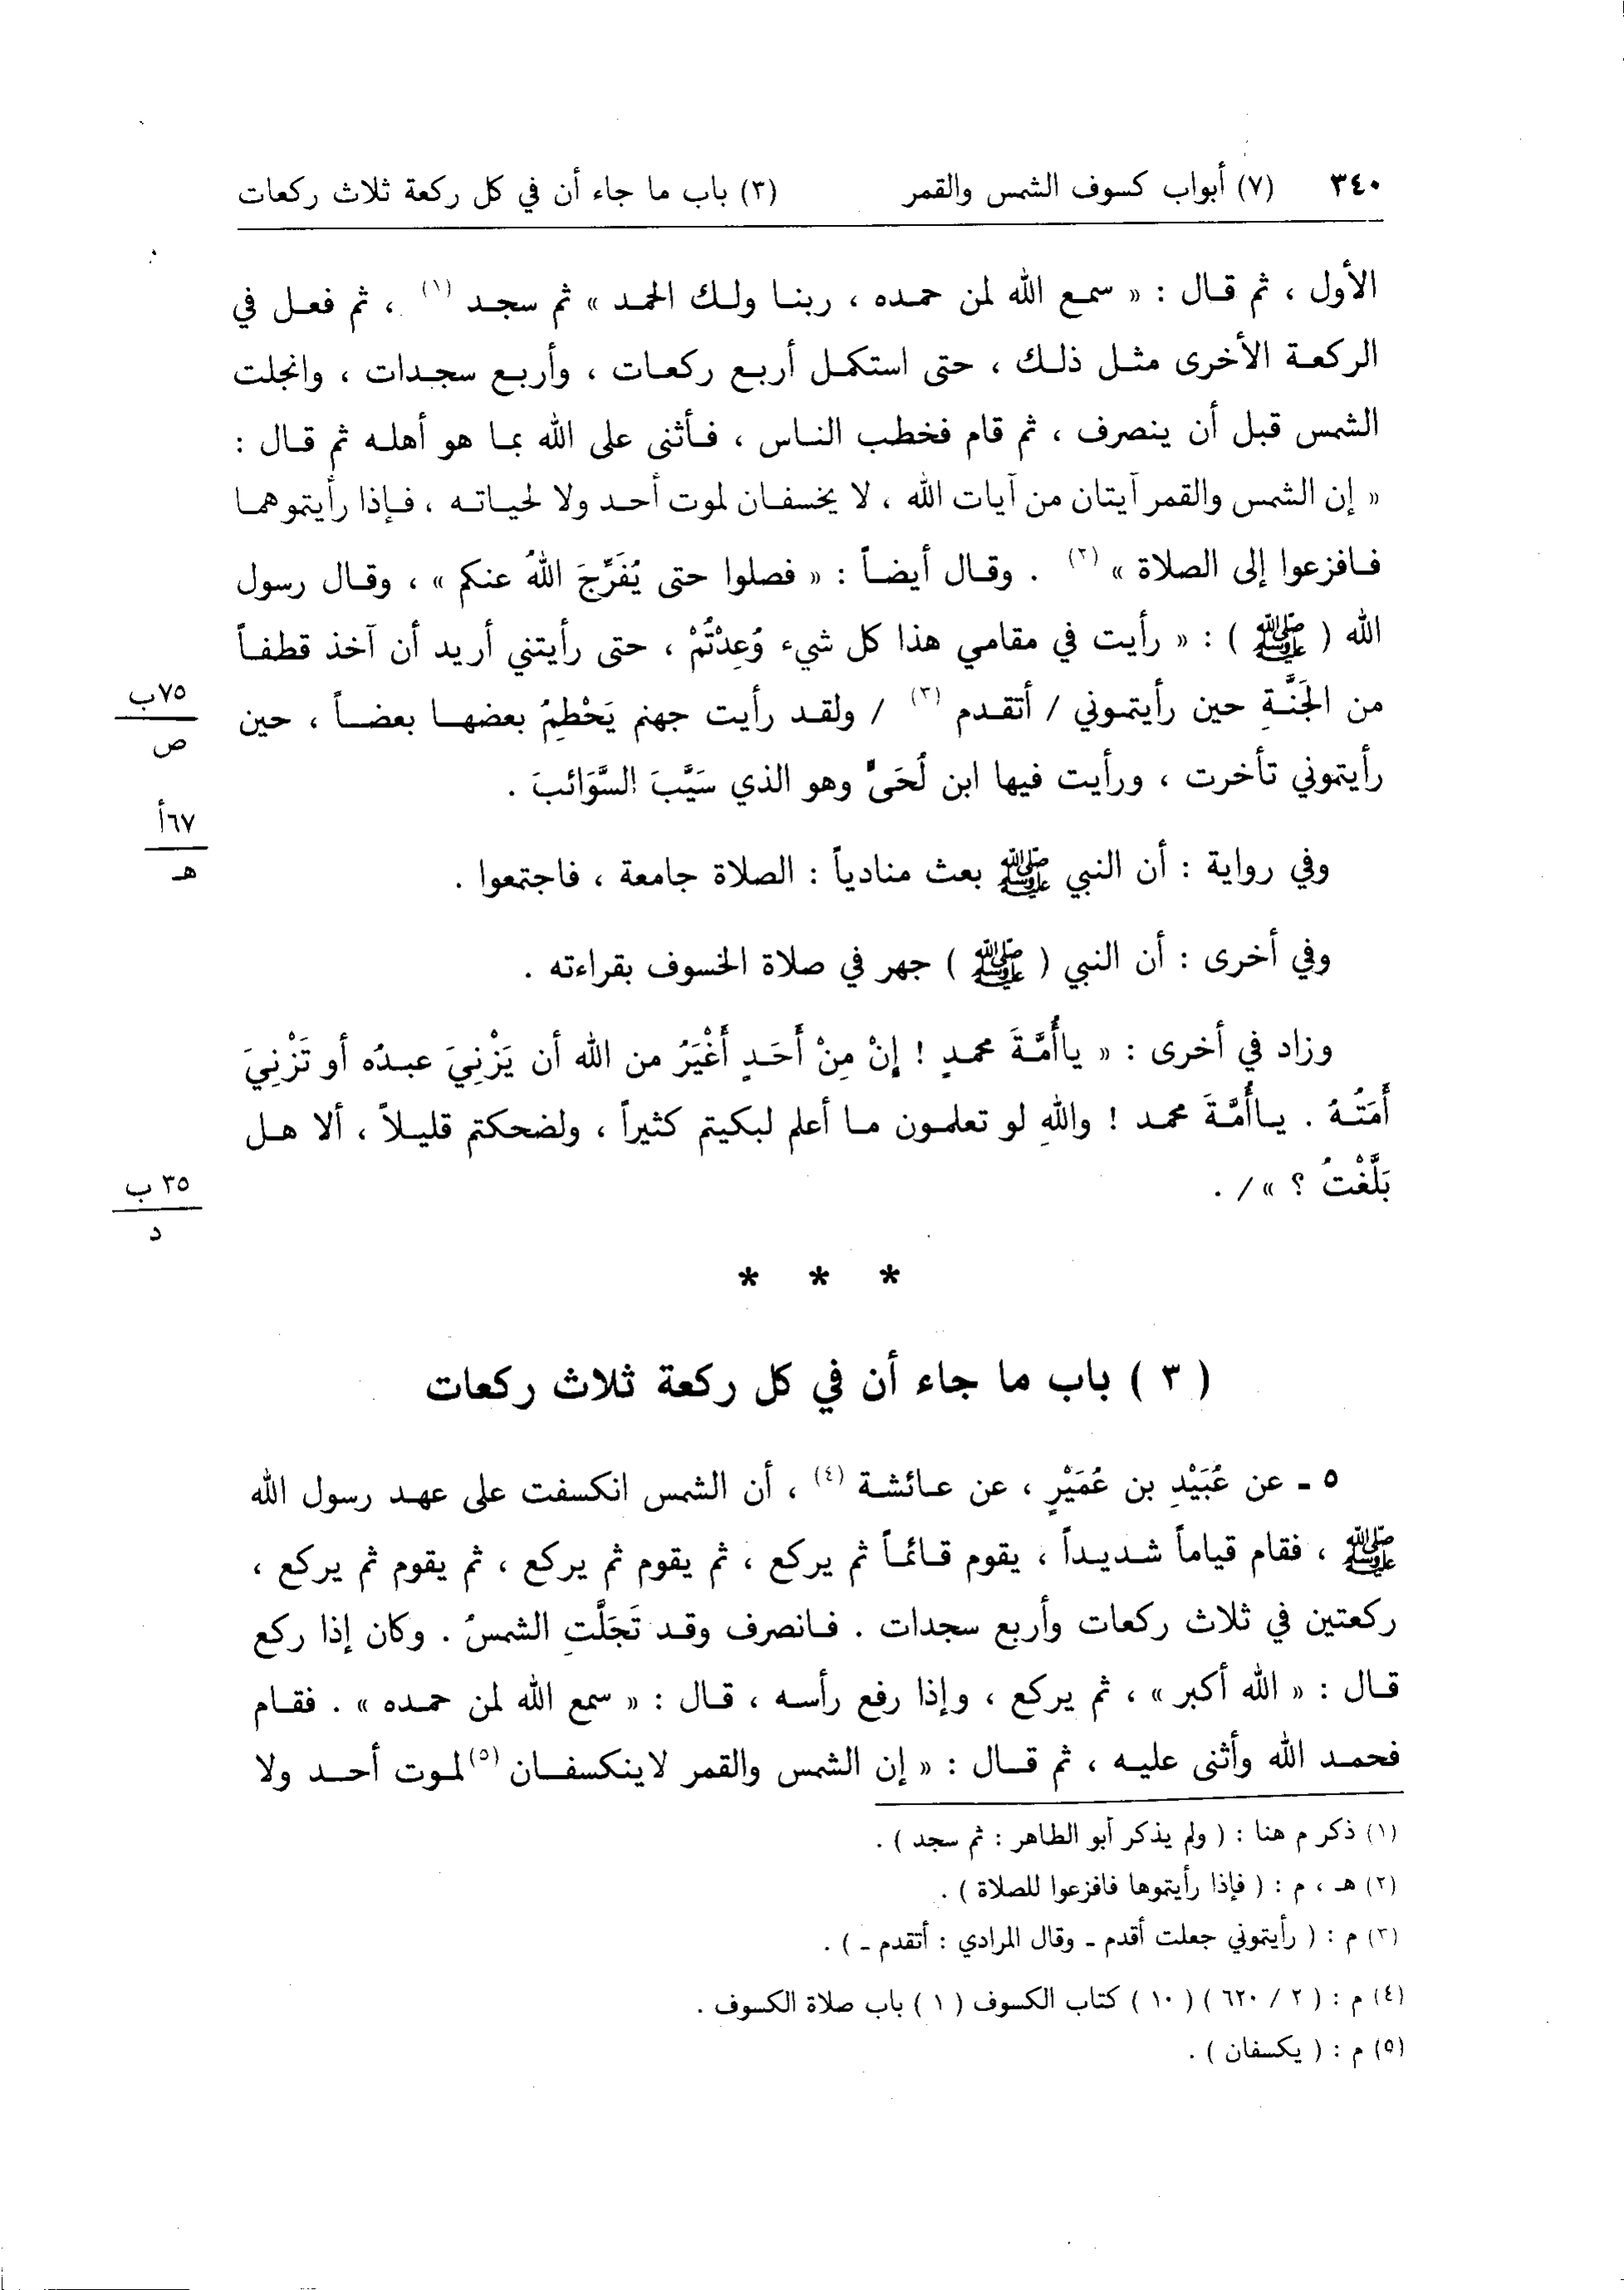 ٣٤٠ (٧) أبواب كسوف الشمس والقمر (٣) باب ما جاء أن في كل ركعة ثلاث ركعات
الأول ، ثم قال : « سمع الله لمن حمده ، ربنا ولك الحمد » ثم سجد (١) ، ثم فعل في
الركعة الأخرى مثل ذلك ، حتى استكمل أربع ركعات ، وأربع سجدات ، وانجلت
الشمس قبل أن ينصرف ، ثم قام فخطب الناس ، فأثنى على الله بما هو أهله ثم قال :
« إن الشمس والقمر آيتان من آيات الله ، لا يخسفان لموت أحد ولا لحياته ، فإذا رأيتموهما
فافزعوا إلى الصلاة » (٢) . وقال أيضاً : « فصلوا حتى يُفَرِّجَ اللهُ عنكم » ، وقال رسول
الله ( ﷺ ) : « رأيت في مقامي هذا كل شيء وُعِدْتُمْ ، حتى رأيتني أريد أن آخذ قطفاً
من الجَنَّةِ حين رأيتموني / أتقدم (٣) / ولقد رأيت جهنم يَحْطِمُ بعضها بعضاً ، حين
٧٥ب
ص
رأيتموني تأخرت ، ورأيت فيها ابن لُحَىٍّ وهو الذي سَيَّبَ السَّوَائبَ .
٦٧أ
هـ
وفي رواية : أن النبي ﷺ بعث منادياً : الصلاة جامعة ، فاجتمعوا .
وفي أخرى : أن النبي ( ﷺ ) جهر في صلاة الخسوف بقراءته .
وزاد في أخرى : « ياأُمَّةَ محمدٍ ! إنْ مِنْ أَحَدٍ أَغْيَرُ من الله أن يَزْنِيَ عبدُه أو تَزْنِيَ
أَمَتُهُ . ياأُمَّةَ محمد ! واللهِ لو تعلمون ما أعلم لبكيتم كثيراً ، ولضحكتم قليلاً ، ألا هل
بَلَّغْتُ ؟ » / .
٣٥ ب
د
* * *
( ٣ ) باب ما جاء أن في كل ركعة ثلاث ركعات
٥ - عن عُبَيْدِ بن عُمَيْرٍ ، عن عائشة (٤) ، أن الشمس انكسفت على عهد رسول الله
ﷺ ، فقام قياماً شديداً ، يقوم قائماً ثم يركع ، ثم يقوم ثم يركع ، ثم يقوم ثم يركع ،
ركعتين في ثلاث ركعات وأربع سجدات . فانصرف وقد تَجَلَّتِ الشمسُ . وكان إذا ركع
قال : « الله أكبر » ، ثم يركع ، وإذا رفع رأسه ، قال : « سمع الله لمن حمده » . فقام
فحمد الله وأثنى عليه ، ثم قال : « إن الشمس والقمر لاينكسفان (٥) لموت أحد ولا
(١) ذكر م هنا : ( ولم يذكر أبو الطاهر : ثم سجد ) .
(٢) هـ ، م : ( فإذا رأيتموها فافزعوا للصلاة ) .
(٣) م : ( رأيتموني جعلت أقدم - وقال المرادي : أتقدم - ) .
(٤) م : ( ٢ / ٦٢٠ ) ( ١٠ ) كتاب الكسوف ( ١ ) باب صلاة الكسوف .
(٥) م : ( يكسفان ) .